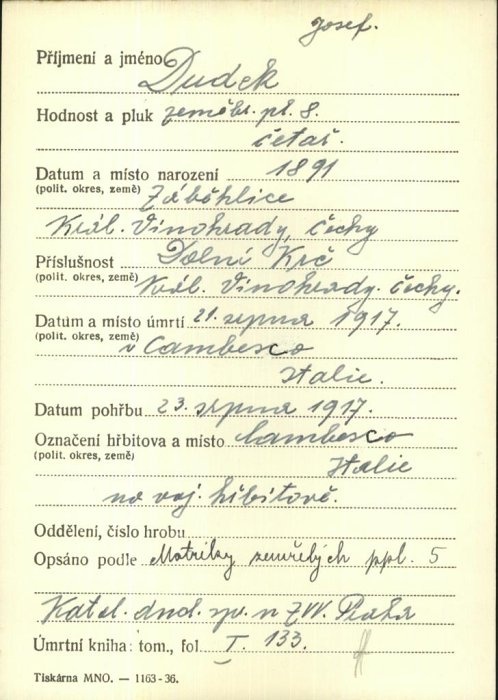 Josef.
Příjmení a jméno Dudek
Hodnost a pluk zeměbr. pl. 8.
četař.
Datum a místo narození 1891
(polit. okres, země) Záběhlice
Král. Vinohrady, Čechy
Příslušnost Dolní Krč
(polit. okres, země) Král. Vinohrady. Čechy.
Datum a místo úmrtí 21. srpna 1917.
(polit. okres, země) v Cambesco
Italie.
Datum pohřbu 23. srpna 1917.
Označení hřbitova a místo Cambesco
(polit. okres, země) Italie
na voj. hřbitově.
Oddělení, číslo hrobu
Opsáno podle Matriky zemřelých ppl. 5
Katol. duch. spr. n ZVV. Praha
Úmrtní kniha: tom., fol. I. 133.
Tiskárna MNO. — 1163-36.